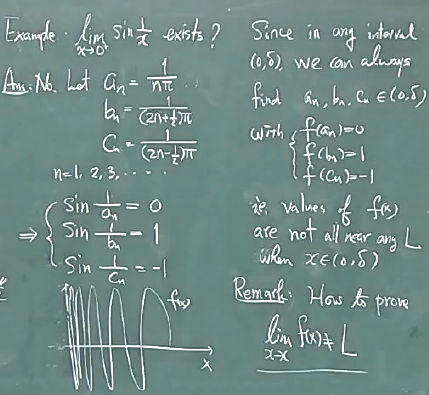 Example. lim x→0⁺ sin 1/x exists?
Ans: No. Let aₙ = 1/nπ
bₙ = 1/(2n+½)π
Cₙ = 1/(2n-½)π
n=1, 2, 3, ....
⇒ { Sin 1/aₙ = 0
Sin 1/bₙ = 1
Sin 1/Cₙ = -1
f(x)
x
Since in any interval
(0,δ), we can always
find aₙ, bₙ, Cₙ ∈ (0,δ)
with { f(aₙ)=0
f(bₙ)=1
f(Cₙ)=-1
i.e. values of f(x)
are not all near any L
when x∈(0,δ)
Remark: How to prove
lim x→x f(x) ≠ L